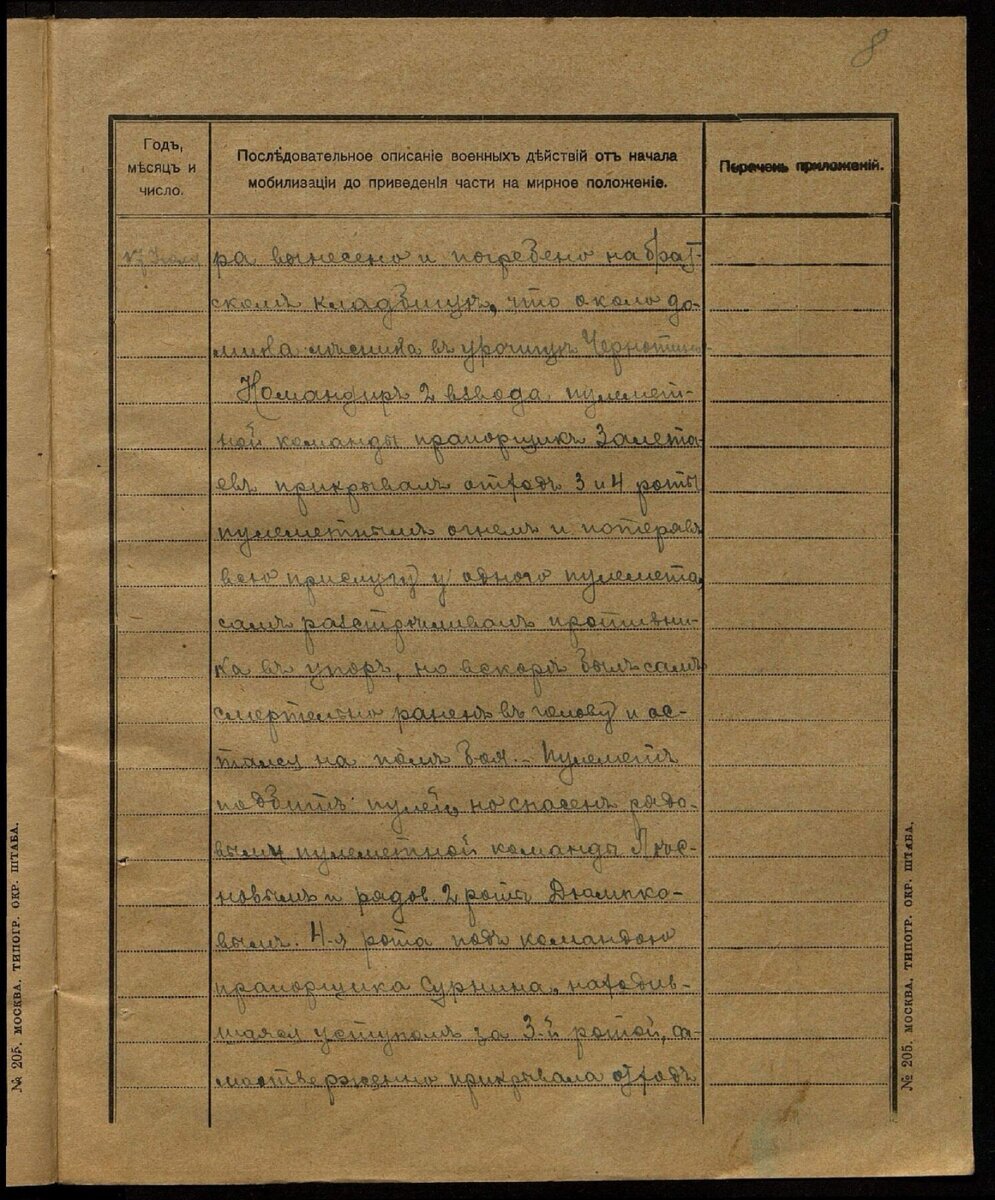 8
Годъ,
мѣсяцъ и
число.
Послѣдовательное описаніе военныхъ дѣйствій отъ начала
мобилизаціи до приведенія части на мирное положеніе.
Перечень приложеній.
ра вынесено и погребено на брат-
скомъ кладбищѣ, что около до-
мика лѣсника въ урочищѣ
Командиръ 2 взвода пулемет-
ной команды прапорщикъ Замета-
евъ прикрывалъ отходъ 3 и 4 роты
пулеметнымъ огнемъ и потерявъ
всю прислугу у одного пулемета,
самъ разстрѣливалъ противни-
ка въ упоръ, но вскорѣ былъ самъ
смертельно раненъ въ голову и ос-
тался на полѣ боя. Пулеметъ
подбитъ пулей, но спасенъ рядо-
вымъ пулеметной команды
новымъ и рядов. 2 роты Дюмпко-
вымъ. 4-я рота подъ командою
прапорщика Сурнина, находив-
шаяся уступомъ за 3-й ротой, са-
моотверженно прикрывала отходъ
№ 205. МОСКВА. ТИПОГР. ОКР. ШТАБА.
№ 205. МОСКВА. ТИПОГР. ОКР. ШТАБА.